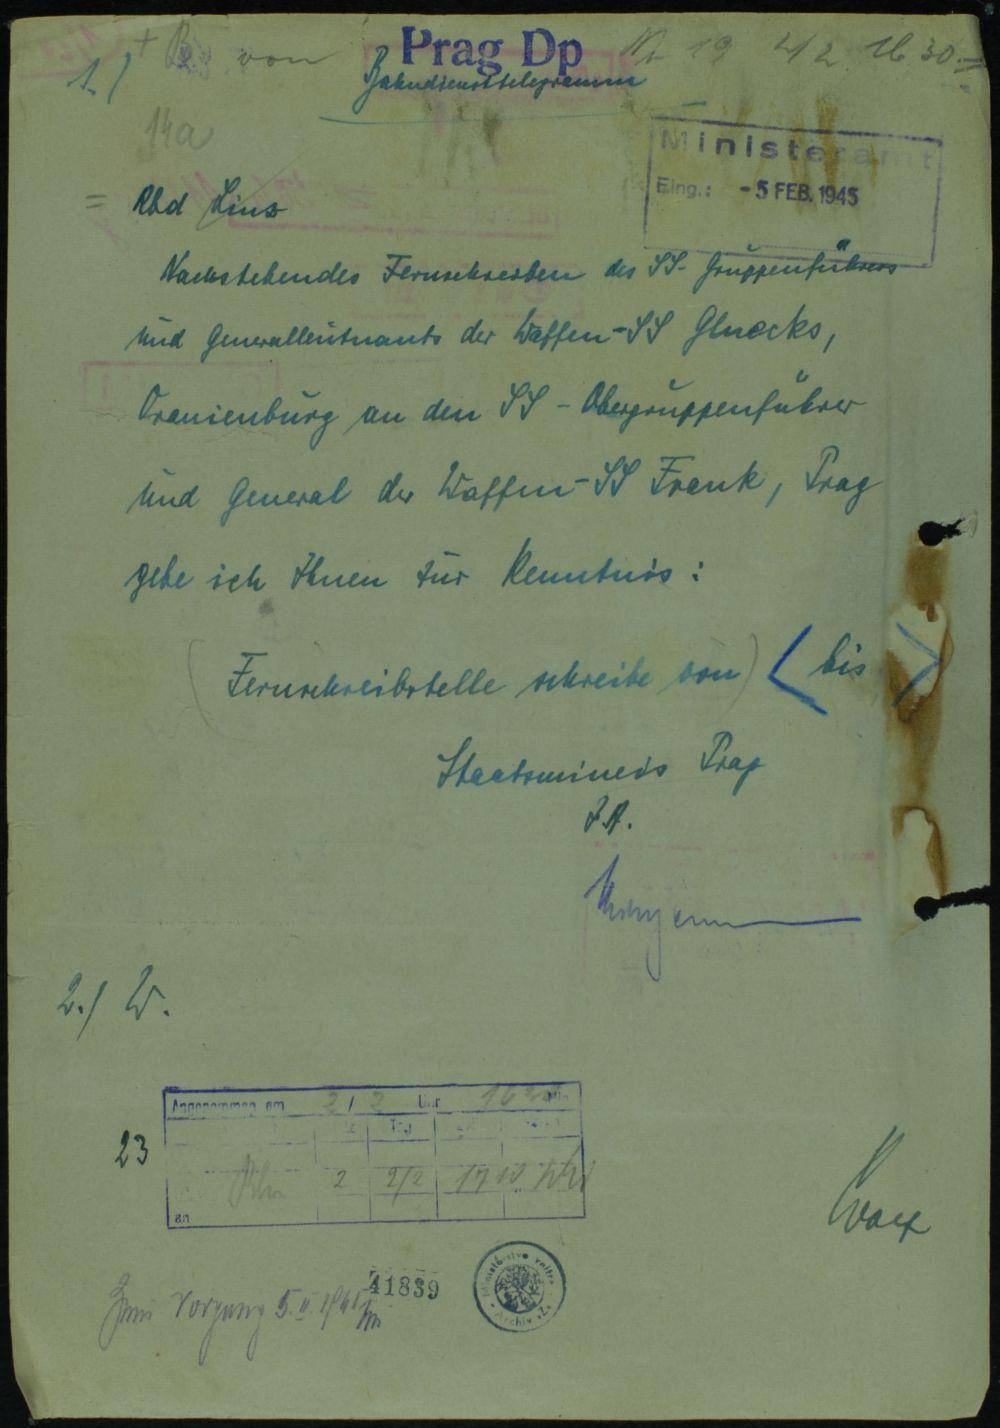 Prag Dp
von
Nr 19 2/2 16 30 =
1./
Bahndiensttelegramm
14a
Ministeramt
Eing.: -5 FEB. 1945
= Rbd Linz
Nachstehendes Fernschreiben des SS-Gruppenführers
und Generalleutnants der Waffen-SS Gluecks,
Oranienburg an den SS-Obergruppenführer
und General der Waffen-SS Frank, Prag
gebe ich Ihnen zur Kenntnis:
(Fernschreibstelle schreibe von) < bis >
Staatsminis Prag
I.A.
2./ W.
Angenommen am 2/2 Uhr
Tag
2 2/2 17
an
23
41839
Zum Vorgang 5. II.
Ministerstvo vnitra
Archiv